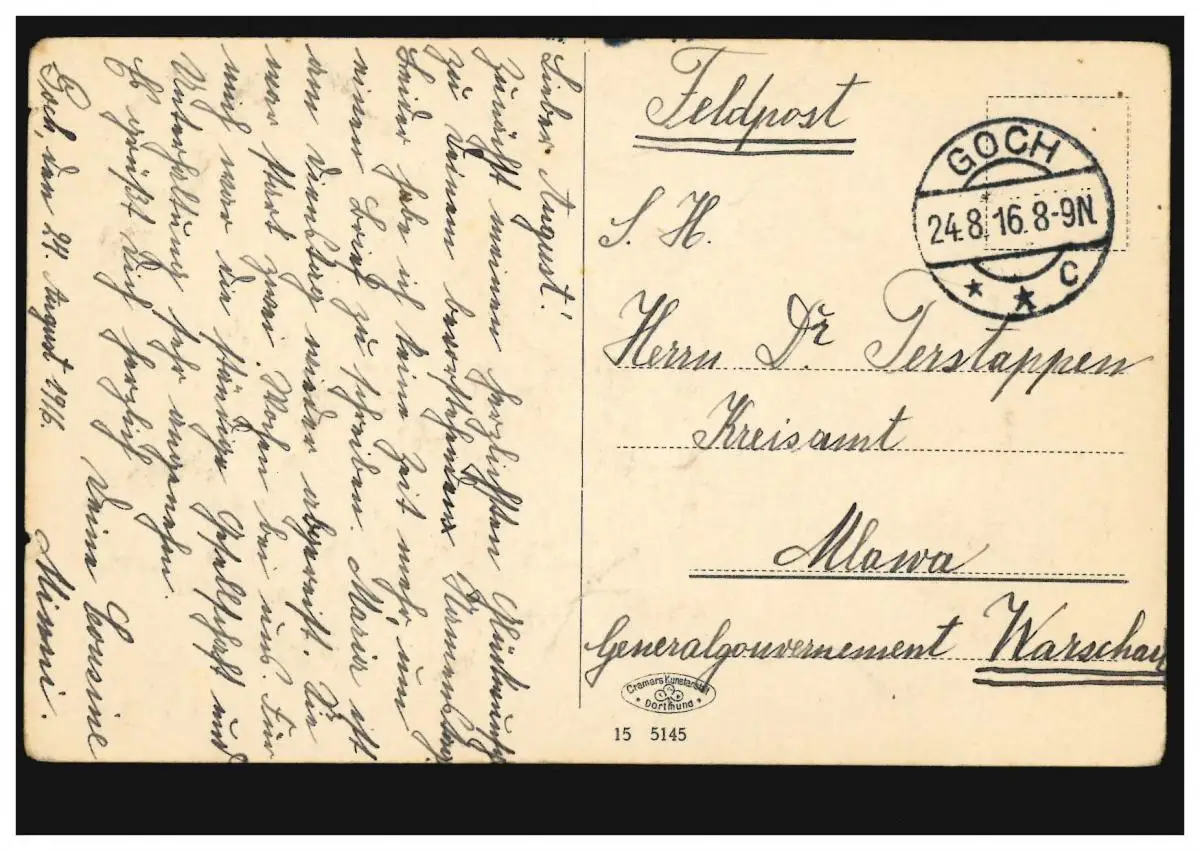 Lieber August!
Zunächst meinen herzlichsten Glückwunsch
zu Deinem bevorstehenden Namenstag.
Leider habe ich keine Zeit mehr, um
einen Brief zu schreiben. Maria ist
den Dienstag wieder abgereist. Sie
war fast zwei Wochen bei uns. Für
mich war die ständige Gesellschaft und
Unterhaltung sehr angenehm.
Es grüßt Dich herzlich Deine Cousine
Minni.
Goch, den 24. August 1916.
Feldpost
S. H.
Herrn Dr Terstappen
Kreisamt
Mlawa
Generalgouvernement Warschau
GOCH
24.8.16.8-9N.
* * C
Cramers Kunstanstalt
Dortmund
15 5145